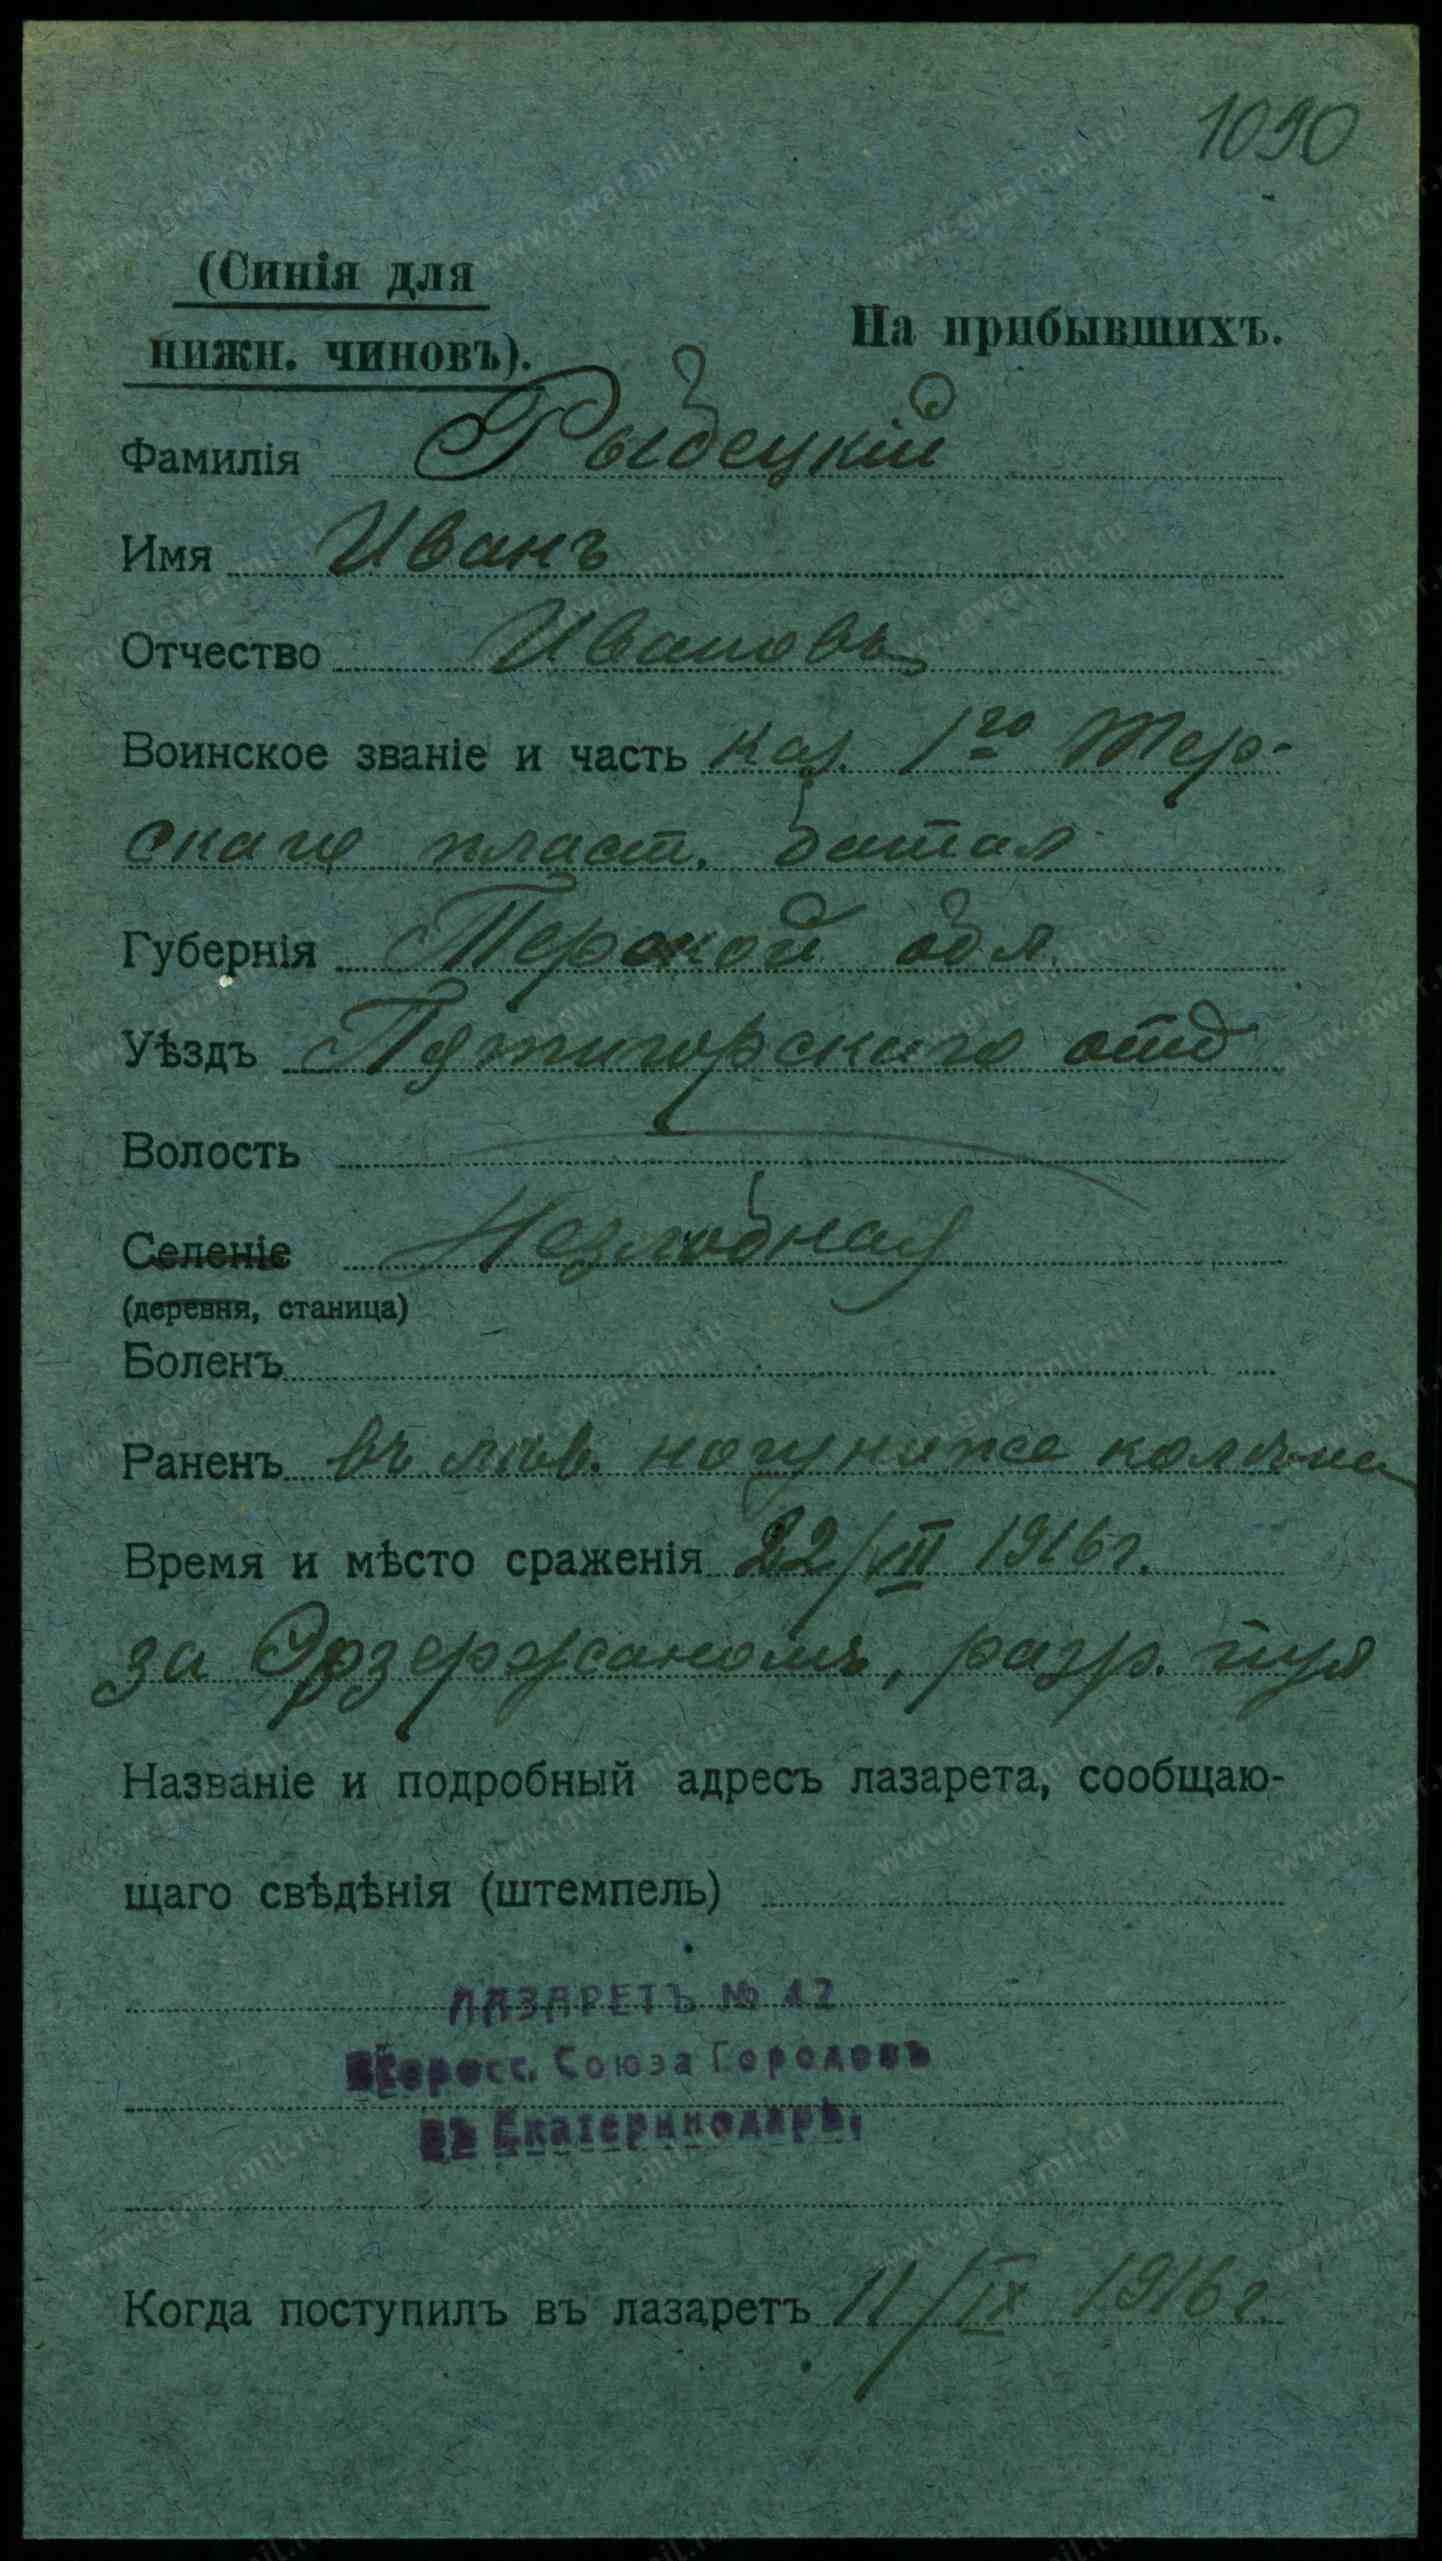 1090
(Синія для
нижн. чиновъ).
На прибывшихъ.
Фамилія Рыбецкій
Имя Иванъ
Отчество Ивановъ
Воинское званіе и часть каз. 1го Тер-
скаго пласт. батал
Губернія Терской обл.
Уѣздъ Пятигорскаго отд
Волость
Селеніе Незлобная
(деревня, станица)
Боленъ
Раненъ въ лѣв. ногу ниже колѣна
Время и мѣсто сраженія 22/VII 1916 г.
за Эрзерджаномъ, разр. пуля
Названіе и подробный адресъ лазарета, сообщаю-
щаго свѣдѣнія (штемпель)
ЛАЗАРЕТЪ № 12
Всеросс. Союза Городовъ
въ Екатеринодарѣ.
Когда поступилъ въ лазаретъ 11/IX 1916 г.
www.gwar.mil.ru